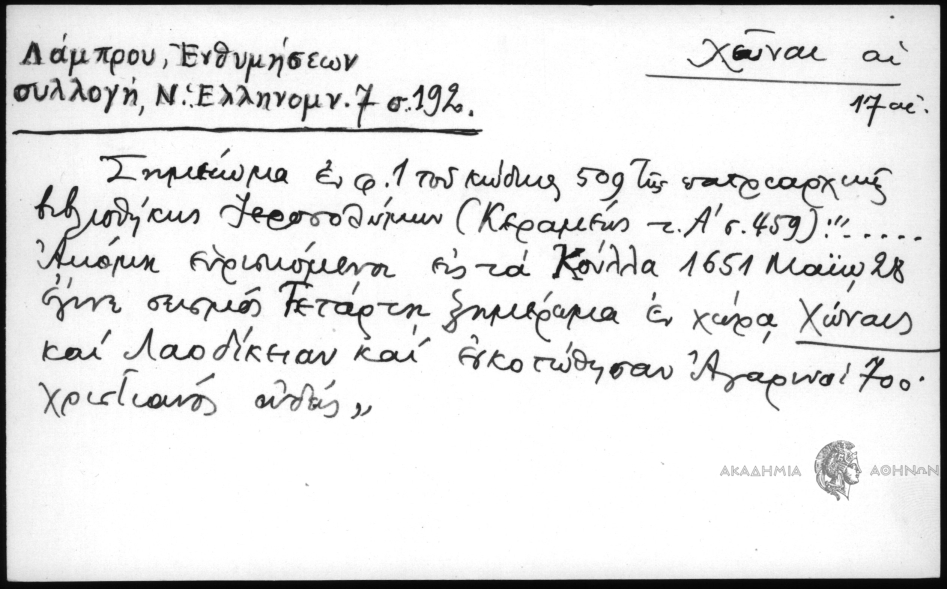 Λάμπρου, Ἐνθυμήσεων
συλλογή, Ν. Ἑλληνομν. 7 σ. 192.
Χῶναι αἱ
17 αἰ.
Σημείωμα ἐν φ. 1 τοῦ κώδικος 509 τῆς πατριαρχικῆς
βιβλιοθήκης Ἱεροσολύμων (Κεραμεύς τ. Α' σ. 459) "......
Ἀκόμη εὑρισκόμενοι εἰς τά Κούλλα 1651 Μαΐῳ 28
ἔγινε σεισμός Τετάρτη ξημέρωμα ἐν χώρᾳ Χώναις
καί Λαοδίκειαν καί ἐσκοτώθησαν Ἀγαρινοί 700.
χριστιανός οὐδείς"
ΑΚΑΔΗΜΙΑ ΑΘΗΝΩΝ